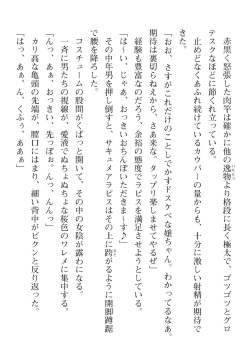 赤黒く怒張した肉竿は確かに他の逸物より格段に長く極太で、ゴツゴツとグロ
テスクなほどに節くれ立っている。
止めどなくあふれ続けているカウパーの量からも、十分に激しい射精が期待で
きた。
「おお、さすがこれだけのことしでかすドスケベな雄ちゃん。わかってるなあ。
期待は裏切らねえから、さあ来な。タップリ楽しませてやるぜ」
経験も豊富なのだろう、余裕の態度でラピスを満足させようとしている。
「はーい、じゃあ、おっきいおちんぽいただきま～す♪」
その中年男を押し倒すと、サキュメアラピスはその上に跨がるように開脚蹲踞
で腰を降ろした。
コスチュームの股間がくぱっと開いて、その中の女陰が露わになる。
一斉に男たちの視線が、愛液でぬちょぬちょな桜色のワレメに集中する。
「んっ、あぁ、おっきい、先っぽぉ。んっ、んんっ」
カリ高な亀頭の先端が、膣口にはまり、細い背中がビクンと反り返った。
「はっ、あぁ、ん、くふぅ、あああぁ」